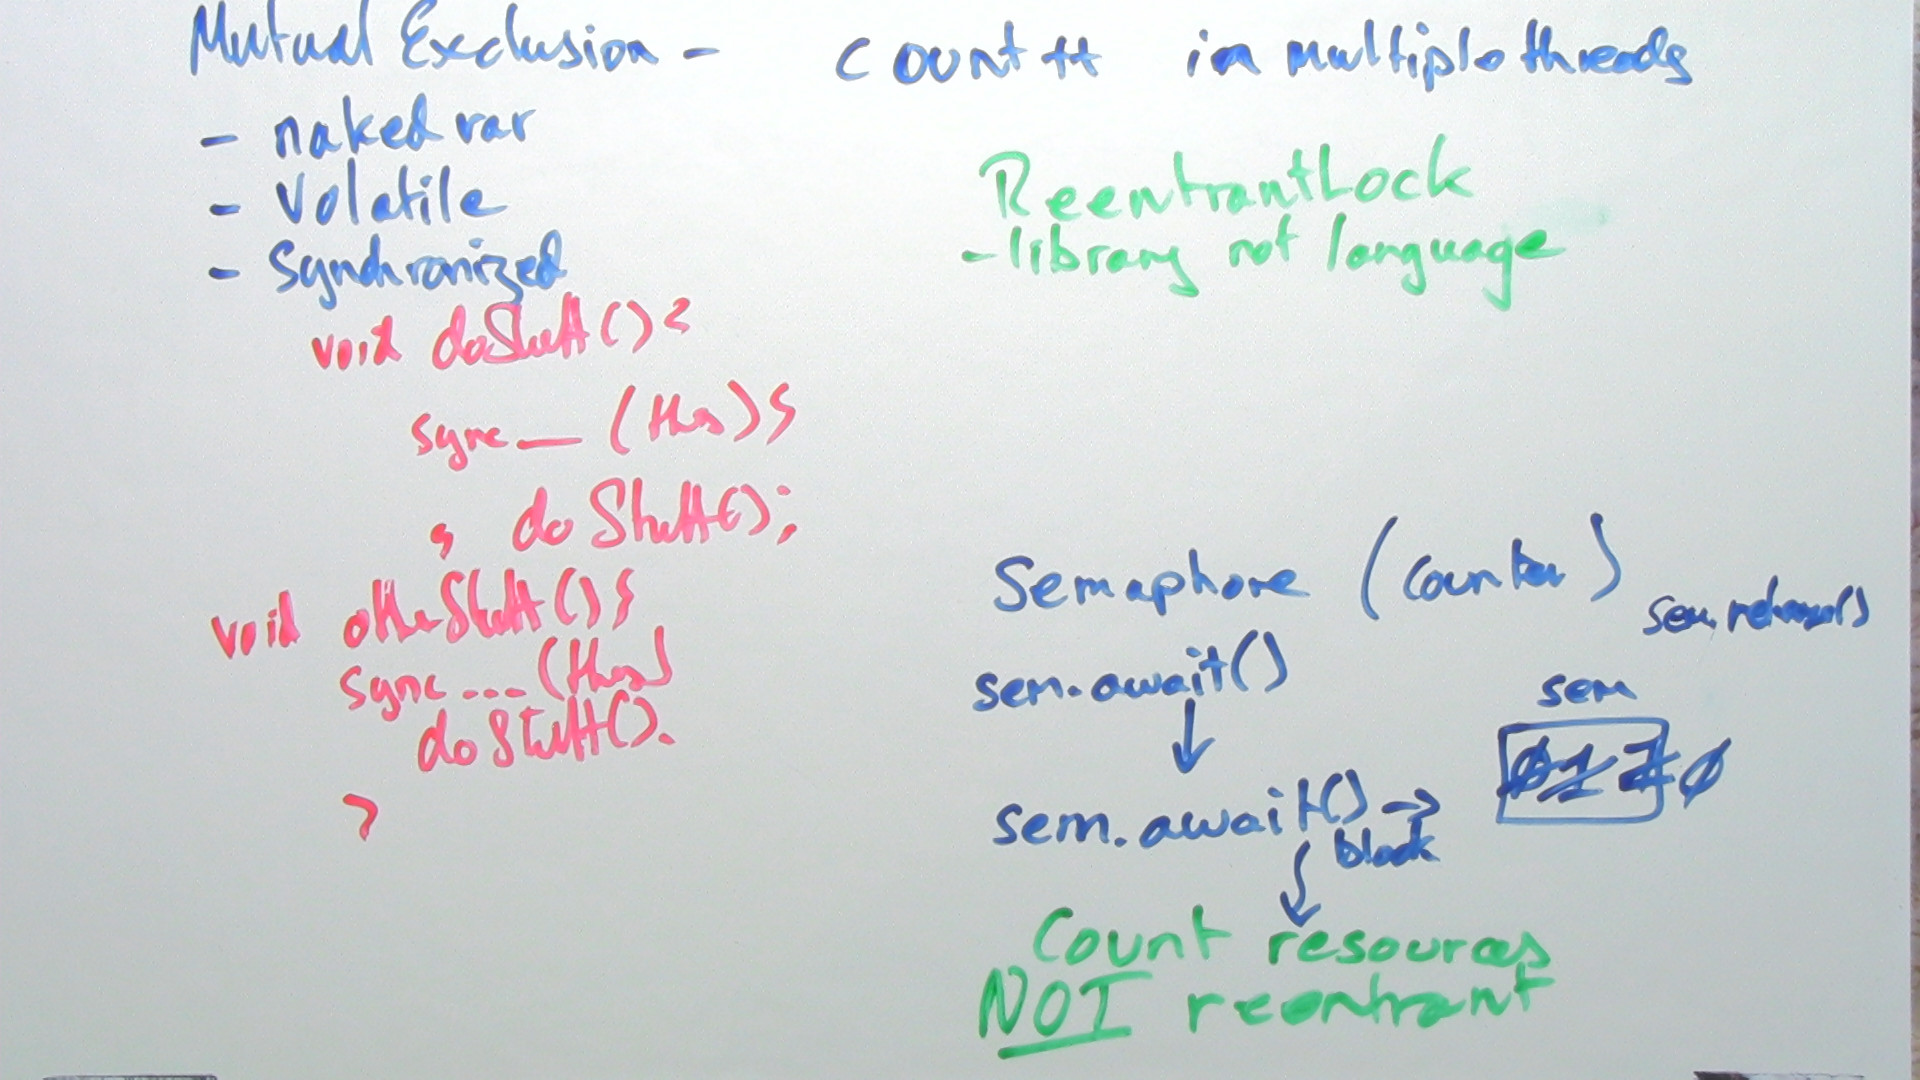 Mutual Exclusion - count++ in multiple threads
- naked var
- Volatile
- Synchronized
void doStuff() {
sync__ (this) {
, doStuff();
void otherStuff() {
sync ... (this)
doStuff().
}
ReentrantLock
- library not language
Semaphore (counter)
sem.release()
sem.await()
sem
sem.await() →
block
Count resources
NOT reentrant